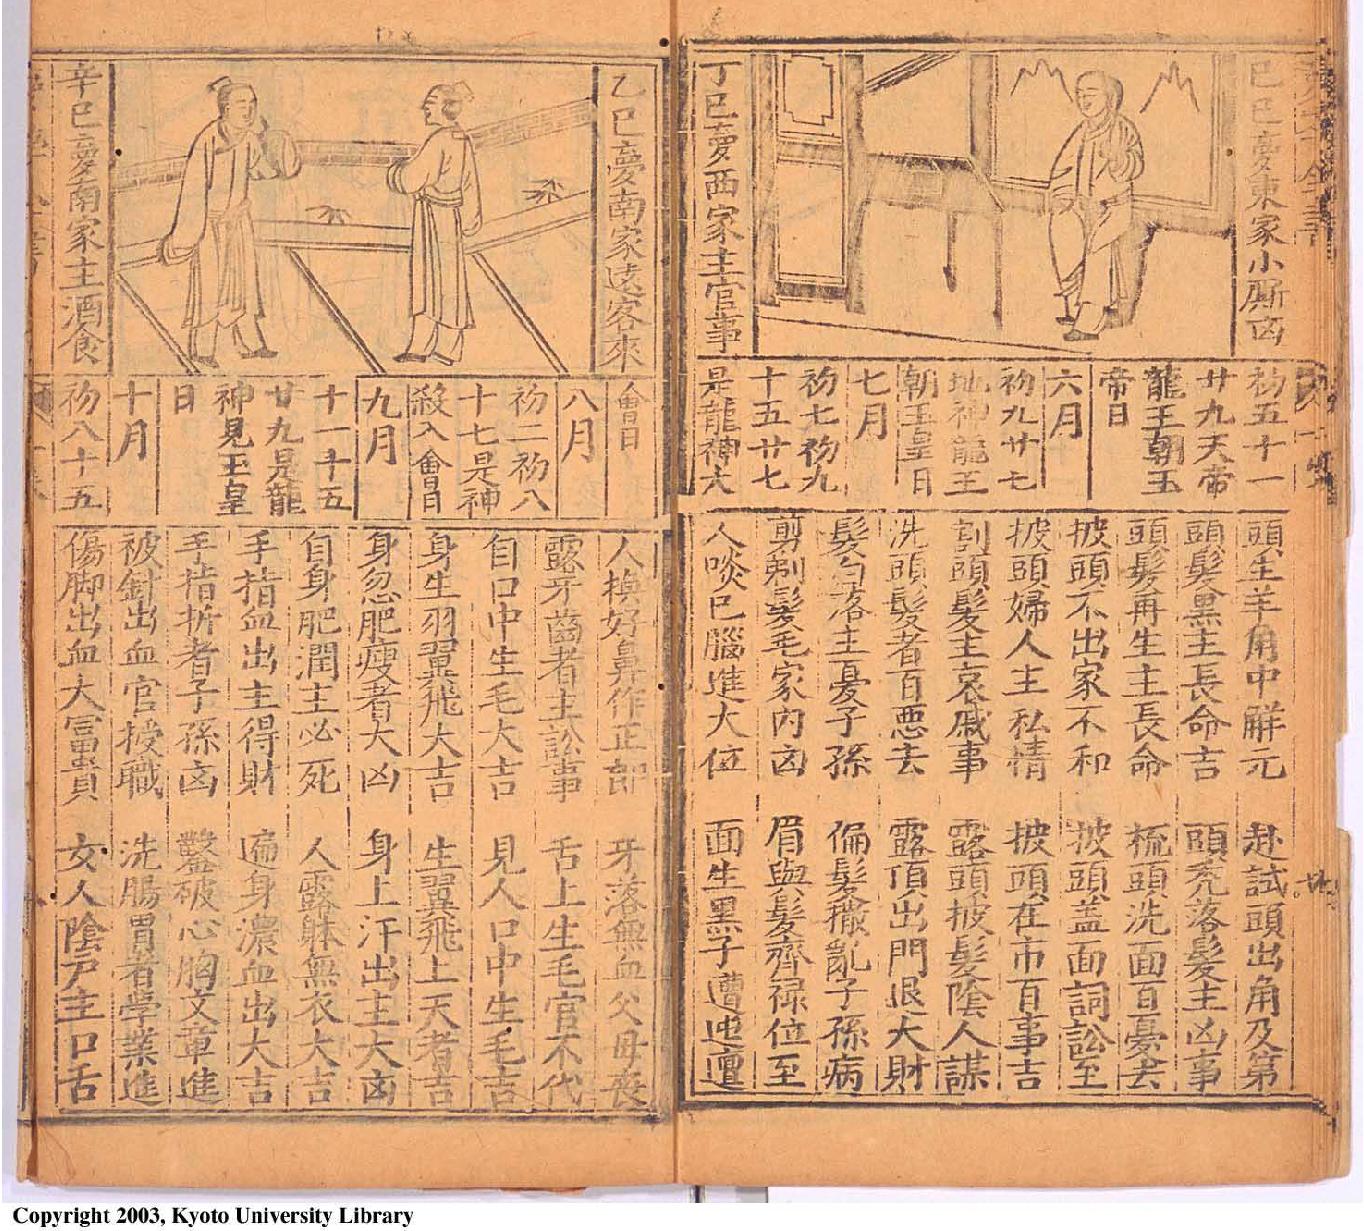 己巳夢東家小厮凶
丁巳夢西家主官事
初五十一
廿九天帝
龍王朝玉
帝日
六月
初九廿七
地神龍王
朝玉皇日
七月
初七初九
十五廿七
是龍神大
頭生羊角中觧元
赴試頭出角及第
頭髮黒主長命吉
頭秃落髮主凶事
頭髮再生主長命
梳頭洗面百憂去
披頭不出家不和
披頭盖面詞訟至
披頭婦人主私情
披頭在市百事吉
割頭髮主哀戚事
露頭披髮陰人謀
洗頭髮者百惡去
露頂出門退大財
髮勻落主憂子孫
偏髮撒亂子孫病
剪剃髮毛家内凶
眉與髮齊禄位至
人啖已腦進大位
面生黒子遭迍邅
乙巳夢南家逺客來
辛巳夢南家主酒食
會日
八月
初二初八
十七是神
殺入會日
九月
十一十五
廿九是龍
神見玉皇
日
十月
初八十五
人換好鼻作正郎
牙落無血父母丧
露牙齒者主訟事
舌上生毛官不代
自口中生毛大吉
見人口中生毛吉
身生羽翼飛大吉
生翼飛上天者吉
身忽肥瘦者大凶
身上汗出主大凶
自身肥潤主必死
人露躰無衣大吉
手指血出主得財
遍身濃血出大吉
手指折者子孫凶
鑿破心胸文章進
被針出血官授職
洗腸胃者學業進
傷脚出血大冨貴
女人陰戸主口舌
Copyright 2003, Kyoto University Library